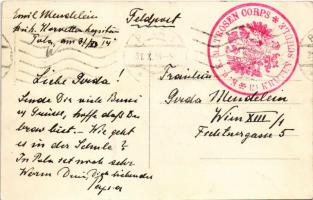 Emil Mendelein
Feldpost
Pola, am 31/XII 14
Liebe Gerda!
Sende Dir viele Bussi
u Grüsse, hoffe daß Du
brav bist. Wie geht
es in der Schule?
In Pola ist noch sehr
Warm Dein Dich liebender
Papa
Fräulein
Gerda Mendelein
Wien XIII/1
Fichtnergasse 5
K. u. K. MATROSEN CORPS